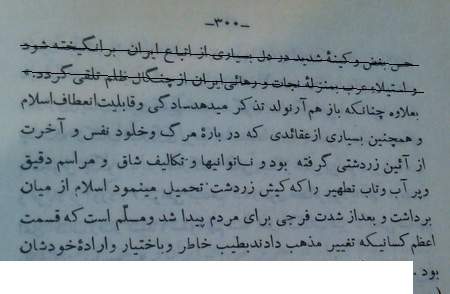 -۳۰۰-
حس بغض و کینهٔ شدید در دل بسیاری از اتباع ایران برانگیخته شود
و استیلاء عرب بمنزلهٔ نجات و رهائی ایران از چنگال ظلم تلقی گردد.
بعلاوه چنانکه باز هم آرنولد تذکر میدهد سادگی و قابلیت انعطاف اسلام
و همچنین بسیاری از عقائدی که در بارهٔ مرگ و خلود نفس و آخرت
از آئین زردشتی گرفته بود و ناتوانیها و تکالیف شاق و مراسم دقیق
و پر آب و تاب تطهیر را که کیش زردشت تحمیل مینمود اسلام از میان
برداشت و بعد از شدت فرجی برای مردم پیدا شد و مسلّم است که قسمت
اعظم کسانیکه تغییر مذهب دادند بطیب خاطر و باختیار و ارادهٔ خودشان
بود.